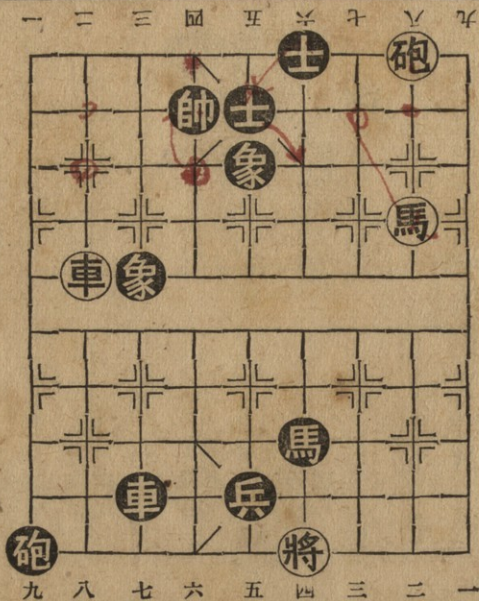 一 二 三 四 五 六 七 八 九
士 砲
帥 士
象
馬
車 象
馬
車 兵
砲 將
九 八 七 六 五 四 三 二 一